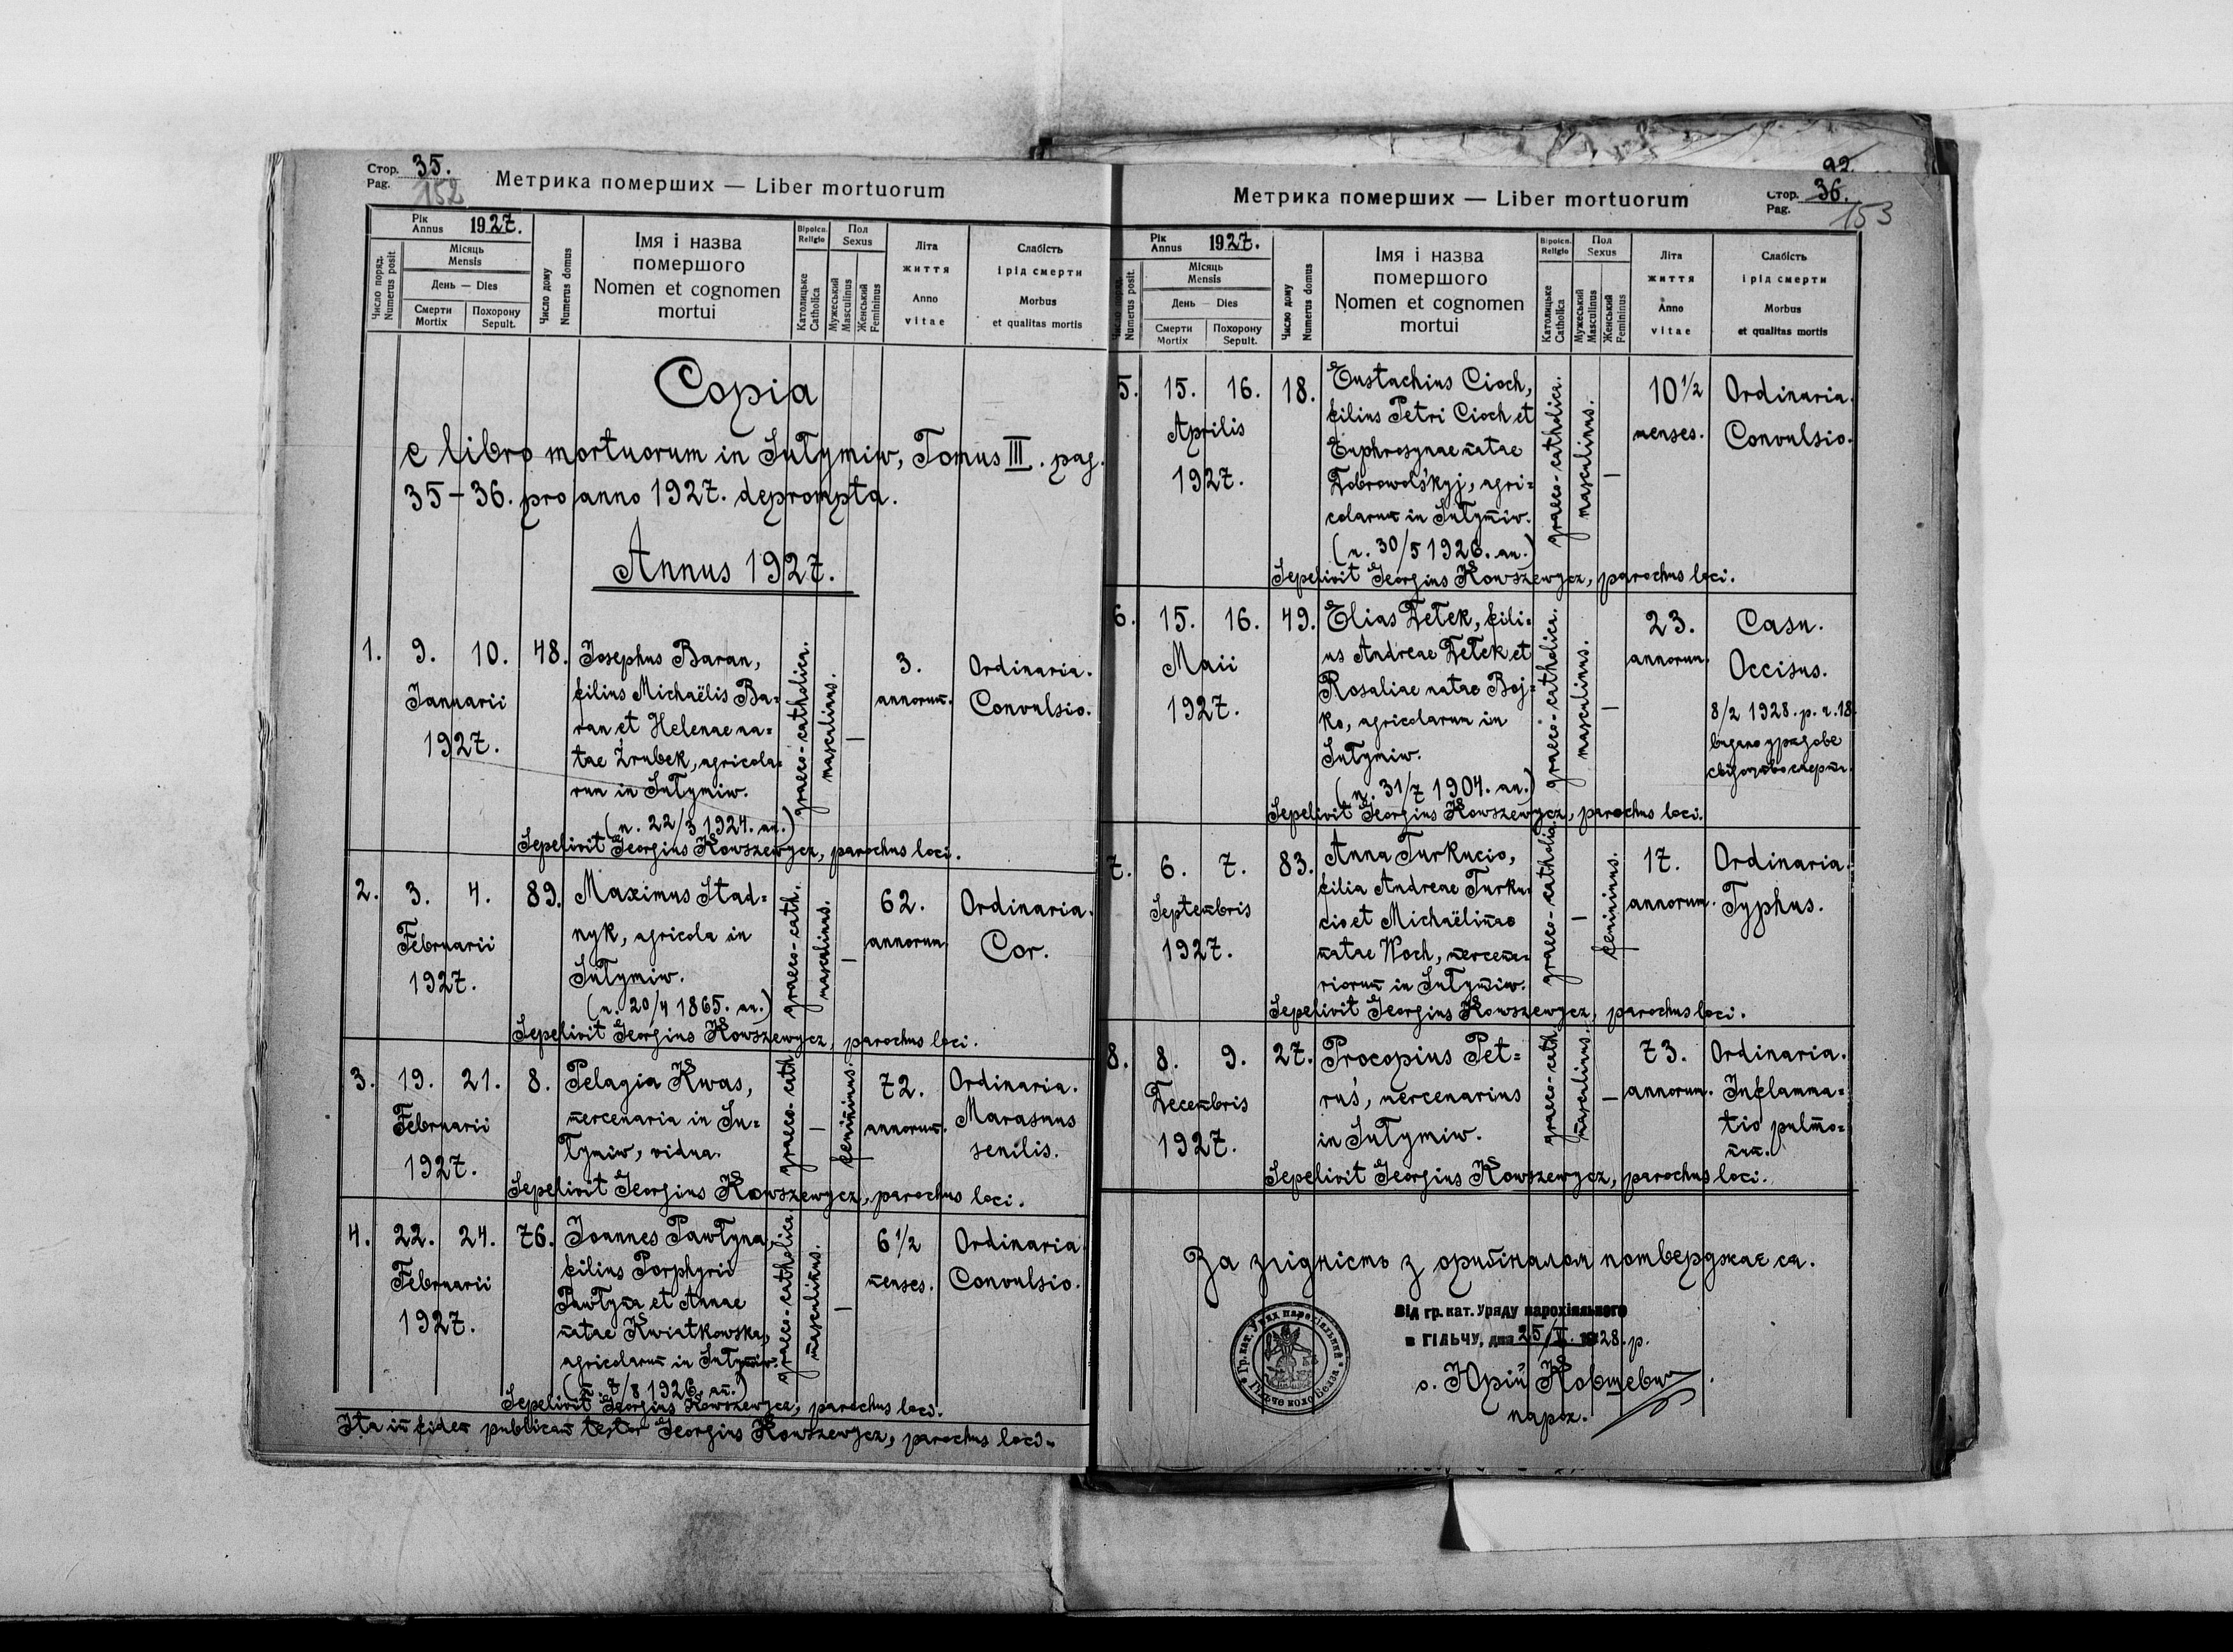 Стор. 35.
Pag. 152
Метрика померших — Liber mortuorum
Рік
Annus 1927.
Місяць
Mensis
День — Dies
Смерти
Mortix
Похорону
Sepult.
Число поряд.
Numerus posit
Число дому
Numerus domus
Імя і назва
помершого
Nomen et cognomen
mortui
Віроісп.
Religio
Католицьке
Catholica
Пол
Sexus
Мужеський
Masculinus
Женський
Femininus
Літа
життя
Anno
vitae
Слабість
і рід смерти
Morbus
et qualitas mortis
Copia
e libro mortuorum in Sułymiw, Tomus III. pag.
35-36. pro anno 1927. deprompta.
Annus 1927.
1. 9. 10. 48.
Januarii
1927.
Josephus Baran,
filius Michaëlis Ba=
ran et Helenae na=
tae Zrubek, agricola=
rum in Sułymiw.
(n. 22/3 1924. an.)
graeco-catholica.
masculinus.
—
3.
annorum.
Ordinaria.
Convulsio.
Sepelivit Georgius Kowszewycz, parochus loci.
2. 3. 4. 89.
Februarii
1927.
Maximus Stad=
nyk, agricola in
Sułymiw.
(n. 20/4 1865. an.)
graeco-cath.
masculinus.
—
62.
annorum
Ordinaria.
Cor.
Sepelivit Georgius Kowszewycz, parochus loci.
3. 19. 21. 8.
Februarii
1927.
Pelagia Kwas,
mercenaria in Su=
łymiw, vidua.
graeco-cath
—
femininus.
72.
annorum.
Ordinaria.
Marasmus
senilis.
Sepelivit Georgius Kowszewycz, parochus loci.
4. 22. 24. 76.
Februarii
1927.
Joannes Pawłyna,
filius Porphyrii
Pawłyna et Annae
natae Kwiatkowska,
agricolarum in Sułymiw.
(n. 7/8 1926. an.)
graeco-catholica.
masculinus.
—
6 1/2
menses.
Ordinaria
Convulsio.
Sepelivit Georgius Kowszewycz, parochus loci.
Ita in fidem publicam testor Georgius Kowszewycz, parochus loci.
92.
Стор. 36.
Pag. 153
Метрика померших — Liber mortuorum
Рік
Annus 1927.
Місяць
Mensis
День — Dies
Смерти
Mortix
Похорону
Sepult.
Число поряд.
Numerus posit.
Число дому
Numerus domus
Імя і назва
помершого
Nomen et cognomen
mortui
Віроісп.
Religio
Католицьке
Catholica
Пол
Sexus
Мужеський
Masculinus
Женський
Femininus
Літа
життя
Anno
vitae
Слабість
і рід смерти
Morbus
et qualitas mortis
5. 15. 16. 18.
Aprilis
1927.
Eustachius Cioch,
filius Petri Cioch et
Euphrosynae natae
Dobrowolśkyj, agri=
colarum in Sułymiw.
(n. 30/5 1926. an.)
graeco-catholica.
masculinus.
—
10 1/2
menses.
Ordinaria.
Convulsio.
Sepelivit Georgius Kowszewycz, parochus loci.
6. 15. 16. 49.
Maii
1927.
Elias Detek, fili=
us Andreae Detek et
Rosaliae natae Boj=
ko, agricolarum in
Sułymiw.
(n. 31/7 1904. an.)
graeco-catholica.
masculinus.
—
23.
annorum.
Casu.
Occisus.
8/2 1928. р. ч. 18.
видано урядове
свідоцтво смерти.
Sepelivit Georgius Kowszewycz, parochus loci.
7. 6. 7. 83.
Septembris
1927.
Anna Turkucio,
filia Andreae Turku=
cio et Michaëlinae
natae Woch, mercena=
riorum in Sułymiw.
graeco-catholica.
—
femininus.
17.
annorum.
Ordinaria.
Typhus.
Sepelivit Georgius Kowszewycz, parochus loci.
8. 8. 9. 27.
Decembris
1927.
Procopius Pet=
ruś, mercenarius
in Sułymiw.
graeco-cath.
masculinus.
—
73.
annorum.
Ordinaria.
Inflamma=
tio pulmo=
num.
Sepelivit Georgius Kowszewycz, parochus loci.
За згідність з оригіналом потверджає ся.
Від гр. кат. Уряду парохіяльного
в ГІЛЬЧУ, дня 25/V. 1928. р.
о. Юрій Ковшевич
парох.